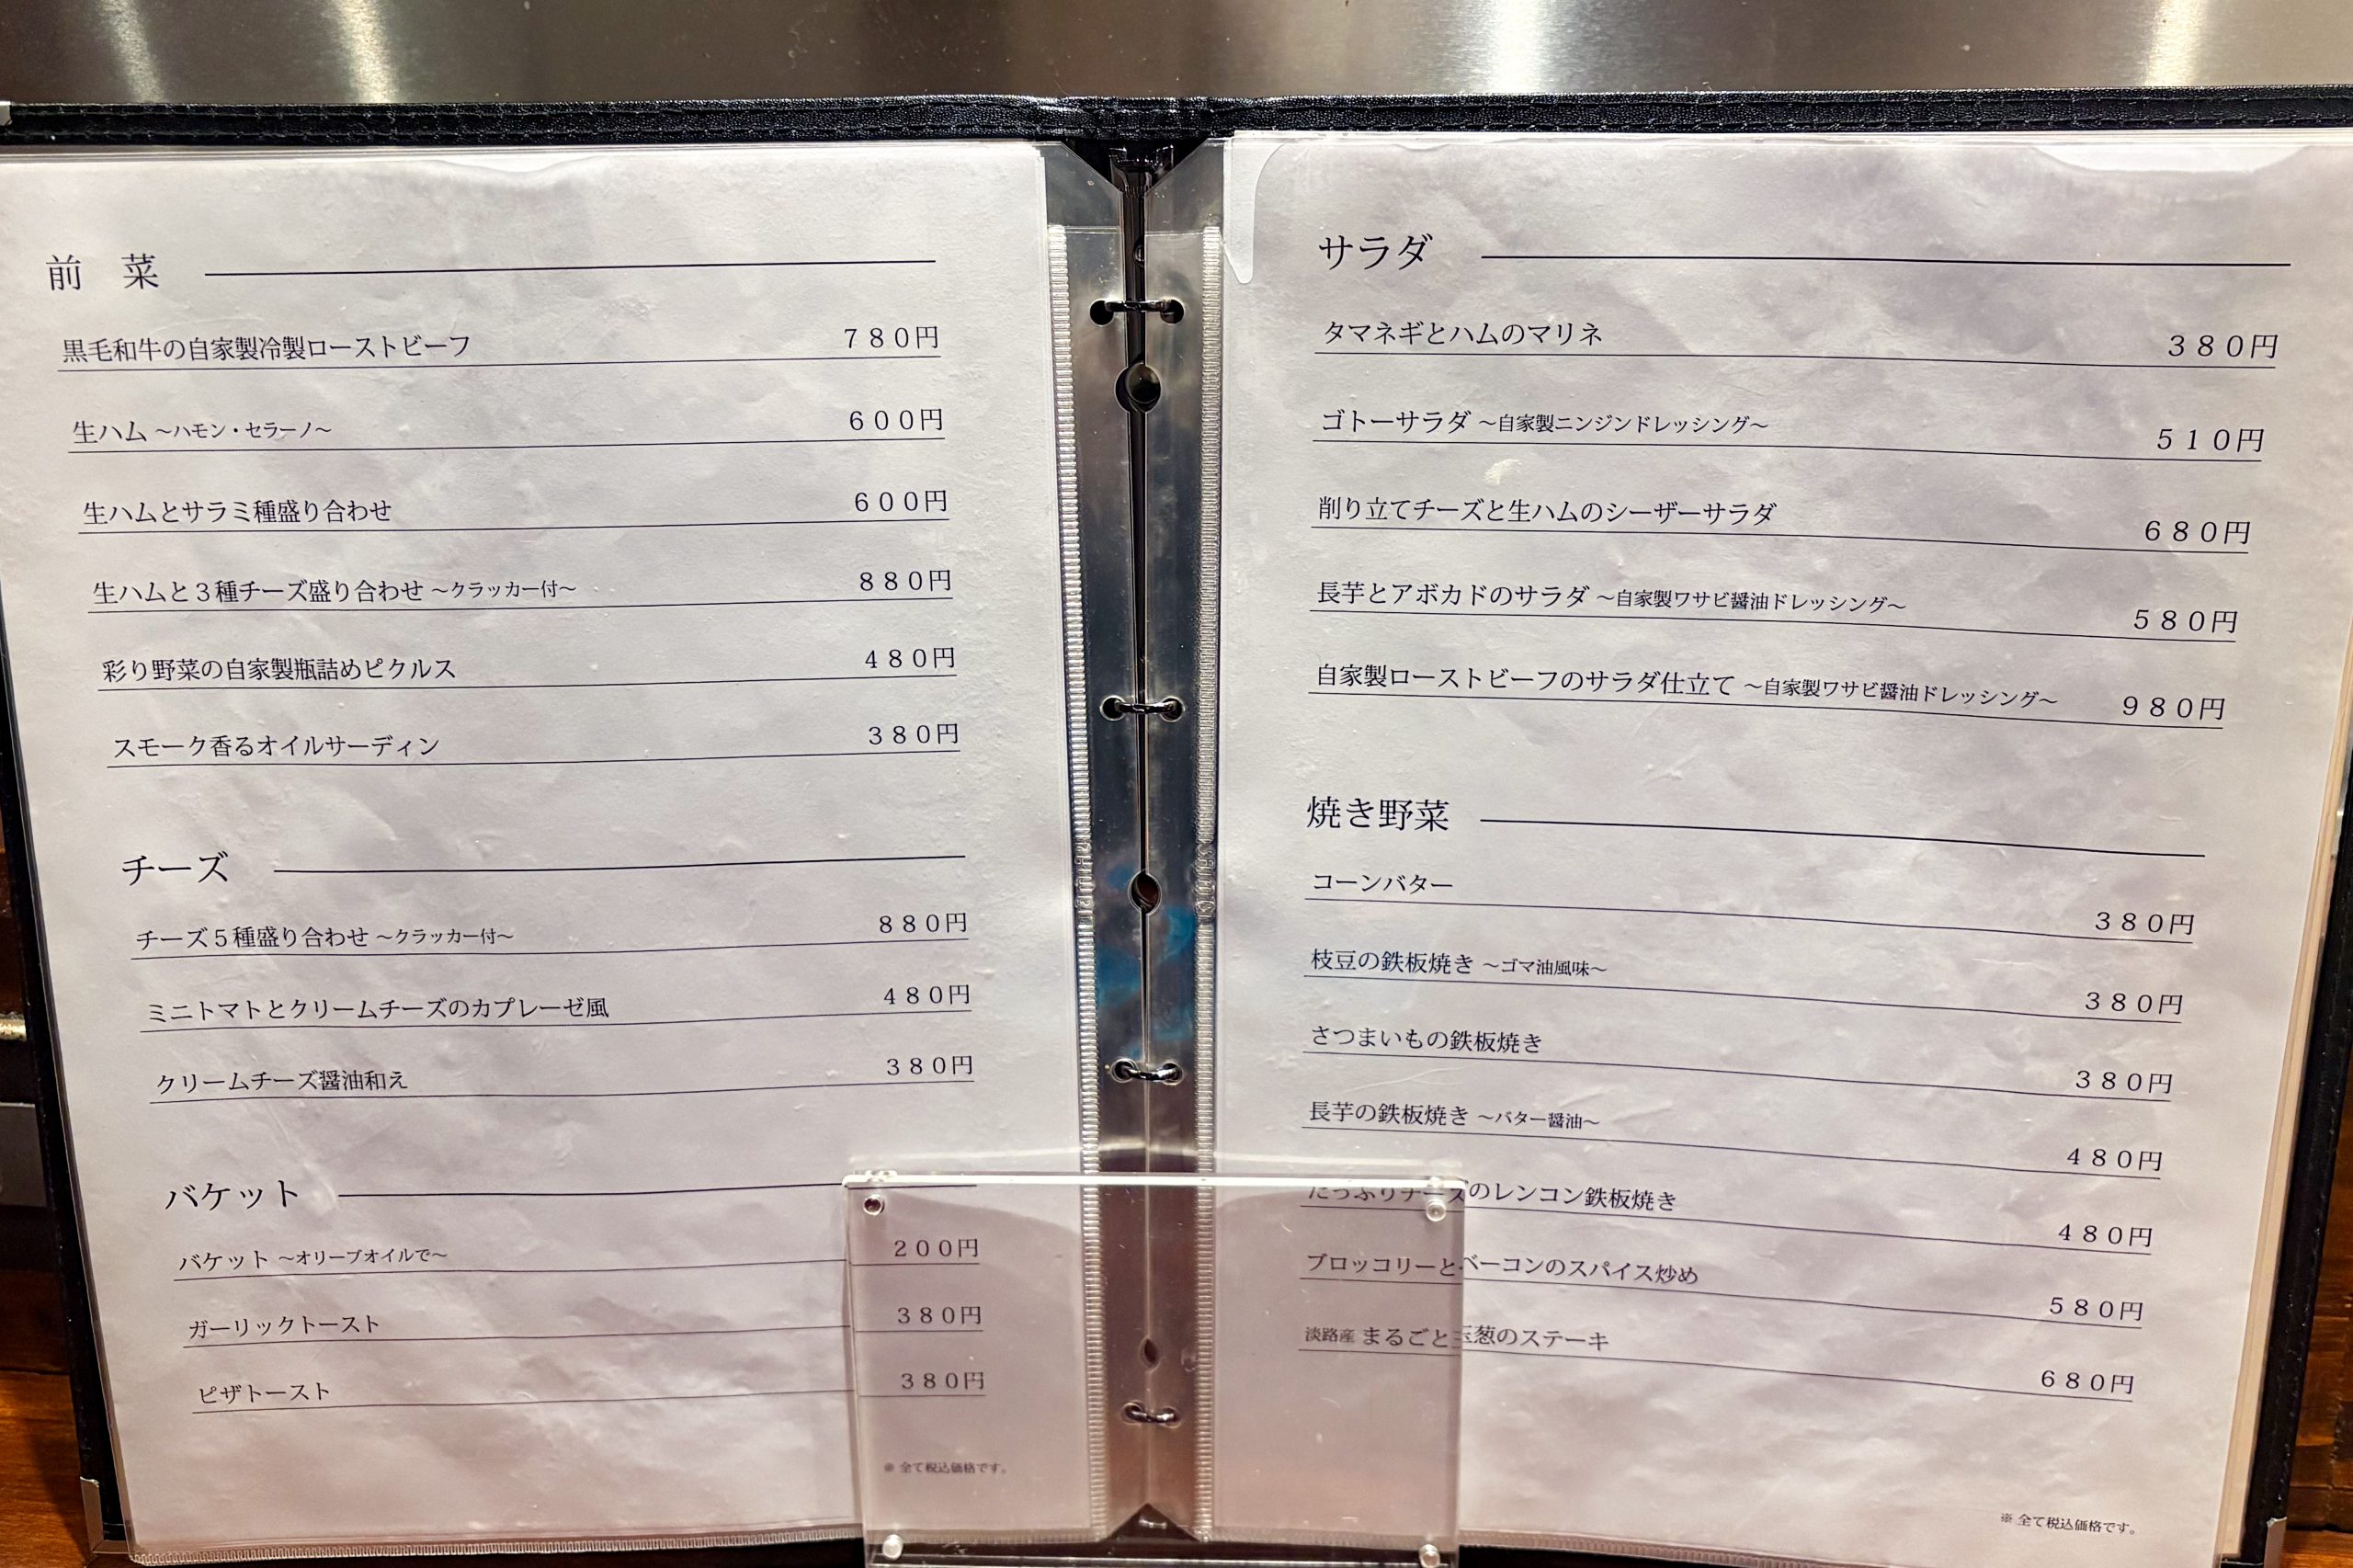 前　菜
黒毛和牛の自家製冷製ローストビーフ　７８０円
生ハム ～ハモン・セラーノ～　６００円
生ハムとサラミ種盛り合わせ　６００円
生ハムと３種チーズ盛り合わせ ～クラッカー付～　８８０円
彩り野菜の自家製瓶詰めピクルス　４８０円
スモーク香るオイルサーディン　３８０円
チーズ
チーズ５種盛り合わせ ～クラッカー付～　８８０円
ミニトマトとクリームチーズのカプレーゼ風　４８０円
クリームチーズ醤油和え　３８０円
バケット
バケット ～オリーブオイルで～　２００円
ガーリックトースト　３８０円
ピザトースト　３８０円
※ 全て税込価格です。
サラダ
タマネギとハムのマリネ　３８０円
ゴトーサラダ ～自家製ニンジンドレッシング～　５１０円
削り立てチーズと生ハムのシーザーサラダ　６８０円
長芋とアボカドのサラダ ～自家製ワサビ醤油ドレッシング～　５８０円
自家製ローストビーフのサラダ仕立て ～自家製ワサビ醤油ドレッシング～　９８０円
焼き野菜
コーンバター　３８０円
枝豆の鉄板焼き ～ゴマ油風味～　３８０円
さつまいもの鉄板焼き　３８０円
長芋の鉄板焼き ～バター醤油～　４８０円
たっぷりチーズのレンコン鉄板焼き　４８０円
ブロッコリーとベーコンのスパイス炒め　５８０円
淡路産 まるごと玉葱のステーキ　６８０円
※ 全て税込価格です。